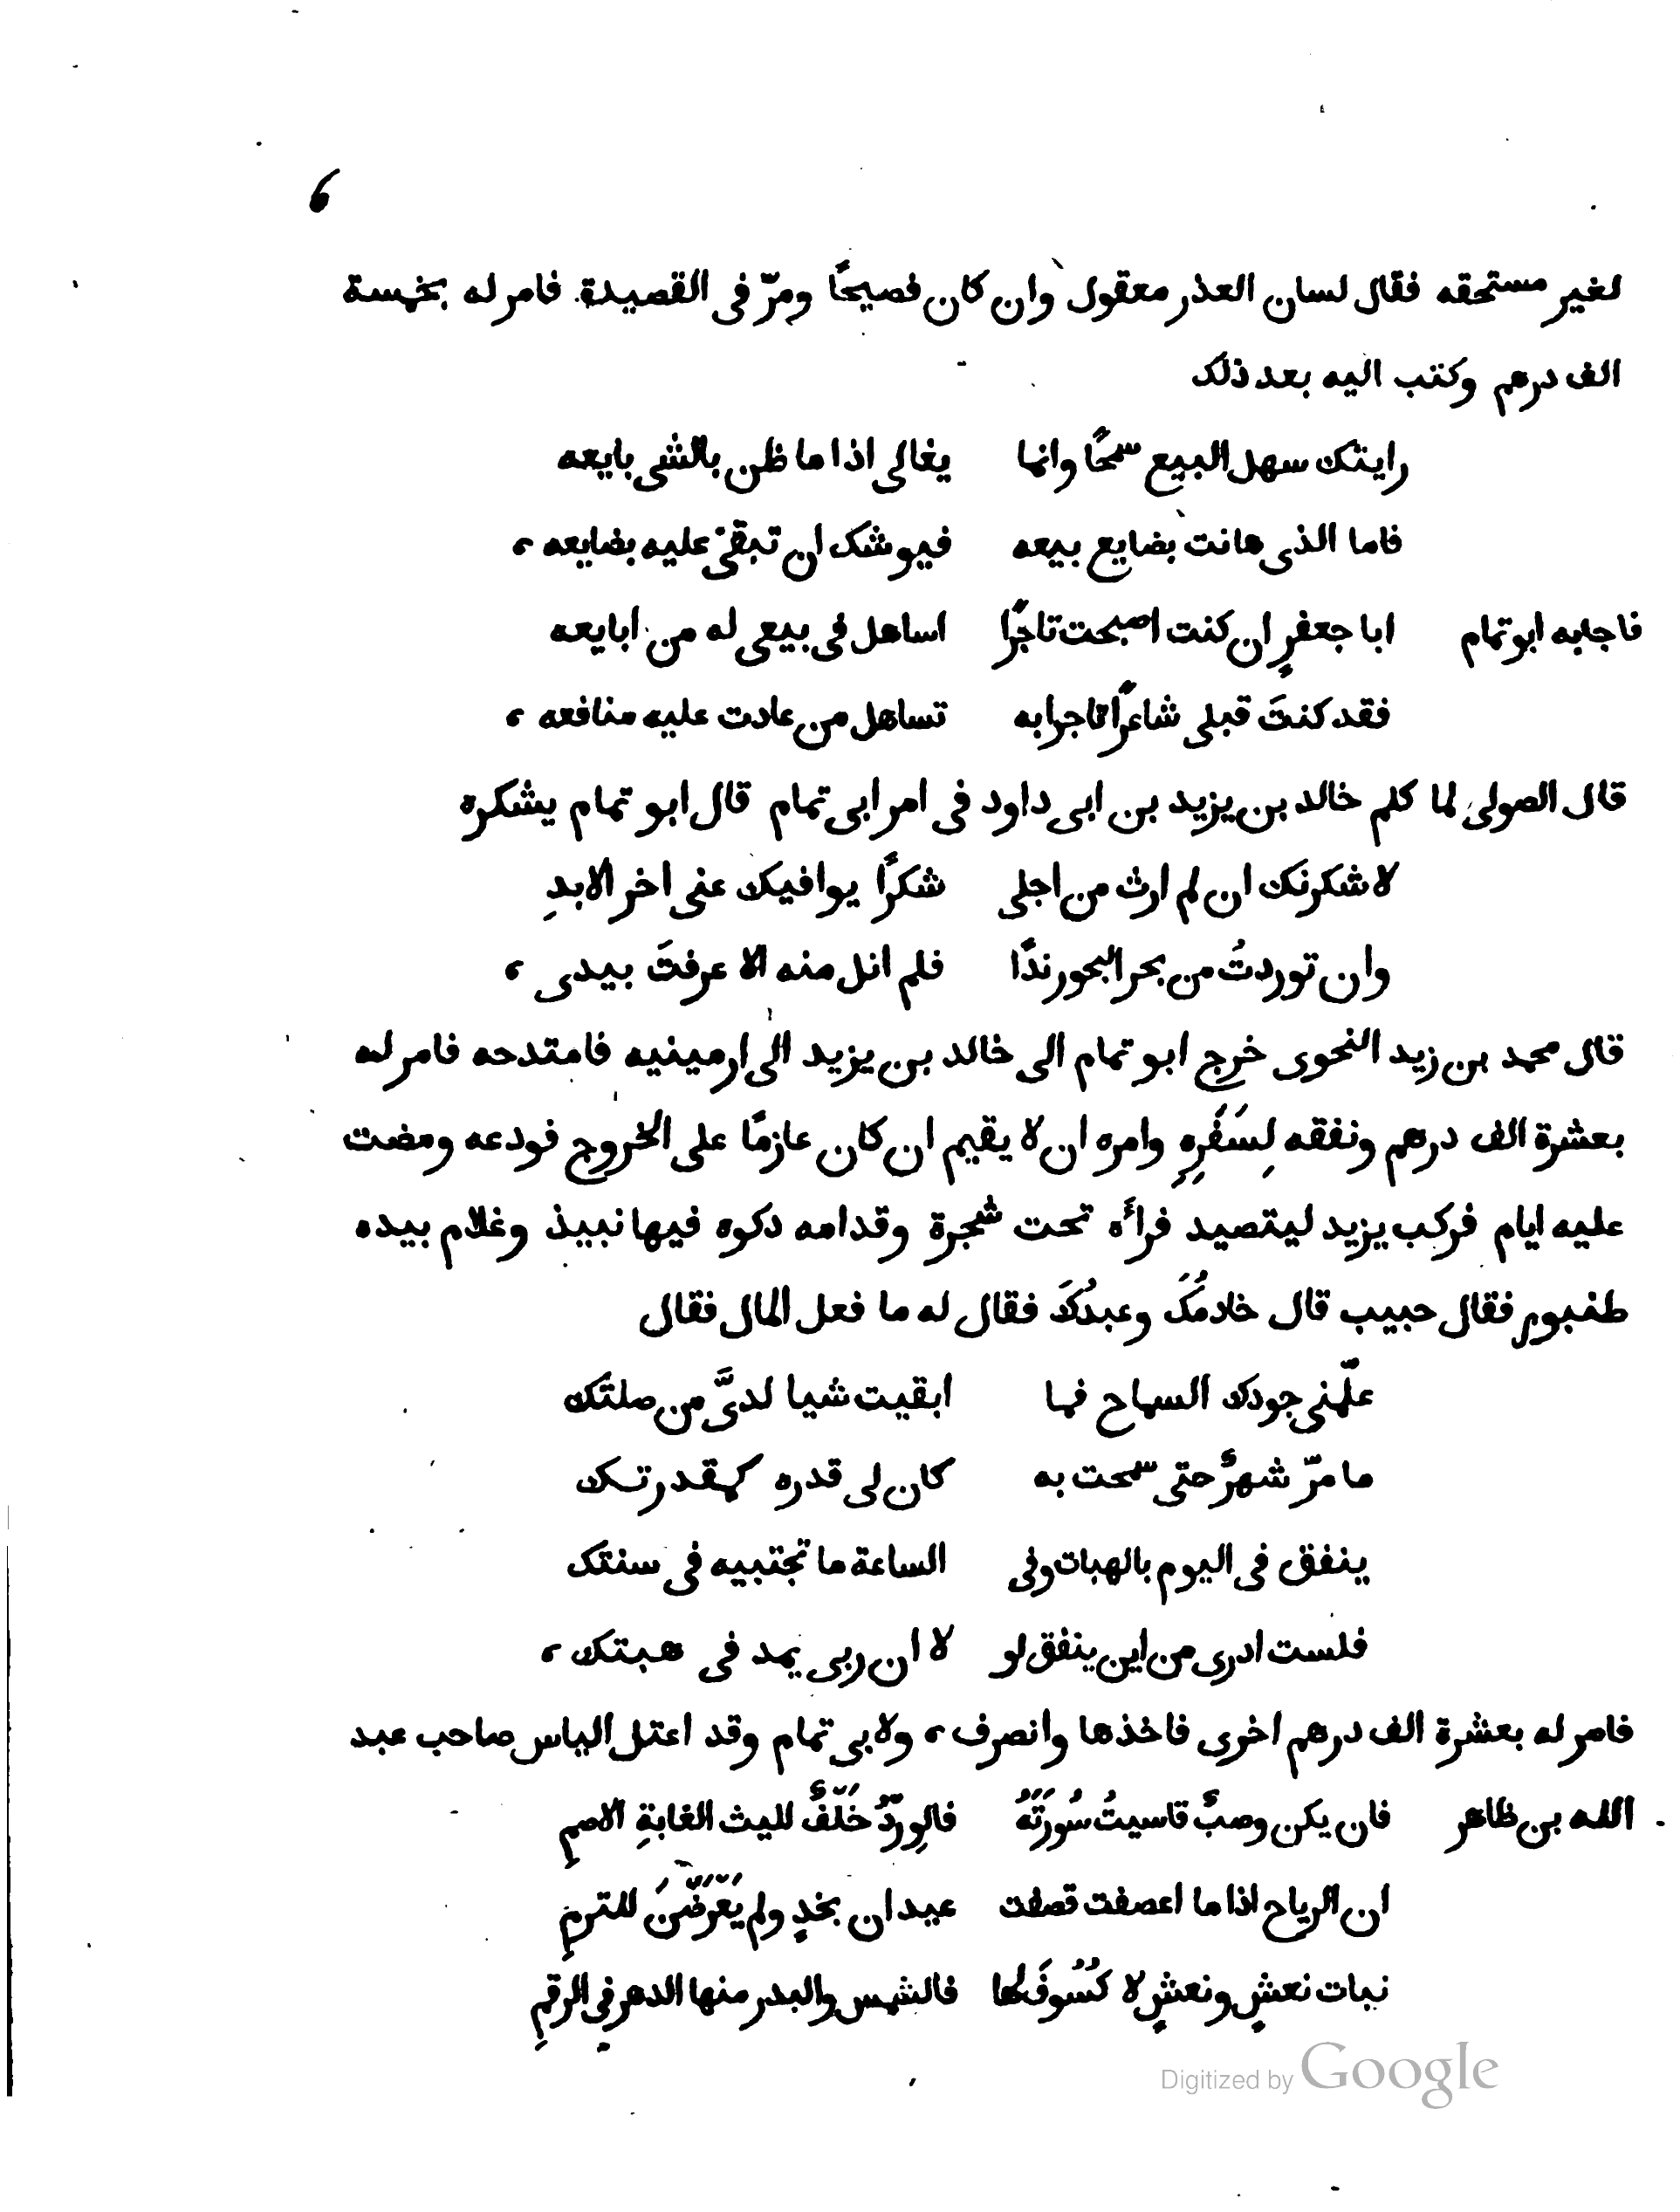 ٦
لغير مستحقه فقال لسان العذر معقول وان كان فصيحًا ومرّ فى القصيدة فامر له بخمسة
الف درهم وكتب اليه بعد ذلك
رايتك سهل البيع سمحًا وانما يغالى اذا ما ظن بالشى بايعه
فاما الذى هانت بضايع بيعه فيوشك ان تبقى عليه بضايعه ،
فاجابه ابو تمام ابا جعفرٍ ان كنت اصبحت تاجرًا اساهل فى بيعى له من ابايعه
فقد كنتَ قبلى شاعرًا تاجرا به تساهل من عادت عليه منافعه ،
قال الصولى لما كلم خالد بن يزيد بن ابى داود فى امر ابى تمام قال ابو تمام يشكره
لاشكرنك ان لم ارث من اجلى شكرًا يوافيك عنى اخر الابدِ
وان توردتُ من بحر البحور ندًا فلم انل منه الا عرفتَ بيدى ،
قال محمد بن زيد النحوى خرج ابو تمام الى خالد بن يزيد الى ارمينيه فامتدحه فامر له
بعشرة الف درهم ونفقه لِسَفَرِهِ وامره ان لا يقيم ان كان عازمًا على الخروج فودعه ومضت
عليه ايام فركب يزيد ليتصيد فرأه تحت شجرة وقدامه دكوه فيها نبيذ وغلام بيده
طنبور فقال حبيب قال خادمُكَ وعبدُكَ فقال له ما فعل المال فقال
علّمنى جودك السماح فما ابقيت شيا لدىَّ من صلتك
ما مرّ شهرٌ حتى سمحت به كان لى قدره كمقدرتك
ينفق فى اليوم بالهبات وفى الساعة ما تجتبيه فى سنتك
فلست ادرى من اين ينفق لو لا ان ربى يمد فى هبتك ،
فامر له بعشرة الف درهم اخرى فاخذها وانصرف ، ولابى تمام وقد اعتل الياس صاحب عبد
الله بن طاهر فان يكن وصبٌ قاسيتُ سُورَتَهُ فالوِردُّ خَلّفٌ لليث الغابةِ الاصمِ
ان الرياح اذا ما اعصفت قصفت عيدان بخدٍ ولم يَعّرَضّنَ للترمِ
نبات نعشٍ ونعشٍ لا كُسُوفَ لها فالشمس والبدر منها الدهر فى الرقمِ
Digitized by Google